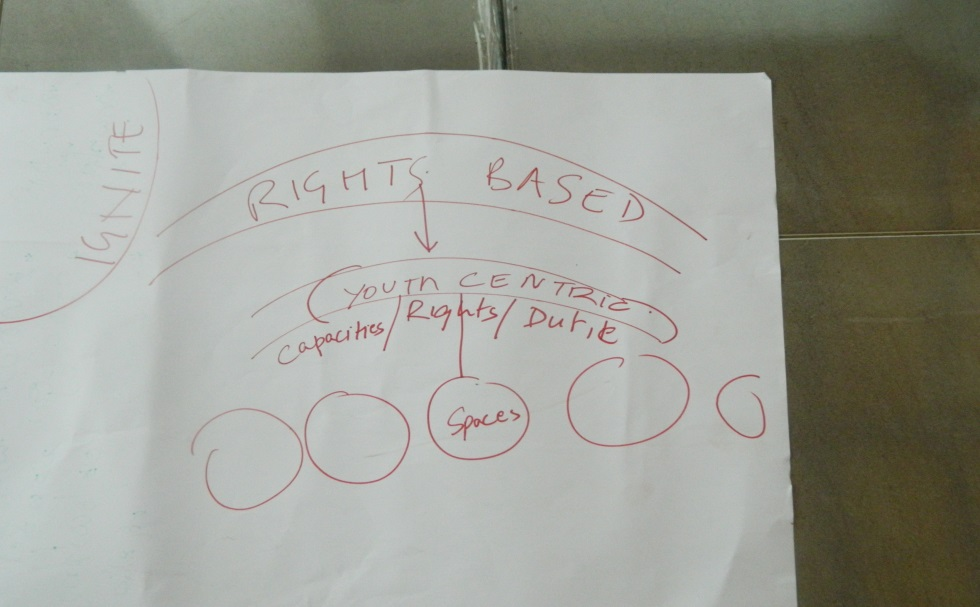 IGNITE
RIGHTS BASED
YOUTH CENTRIC
Capacities/Rights/Dutie
Spaces